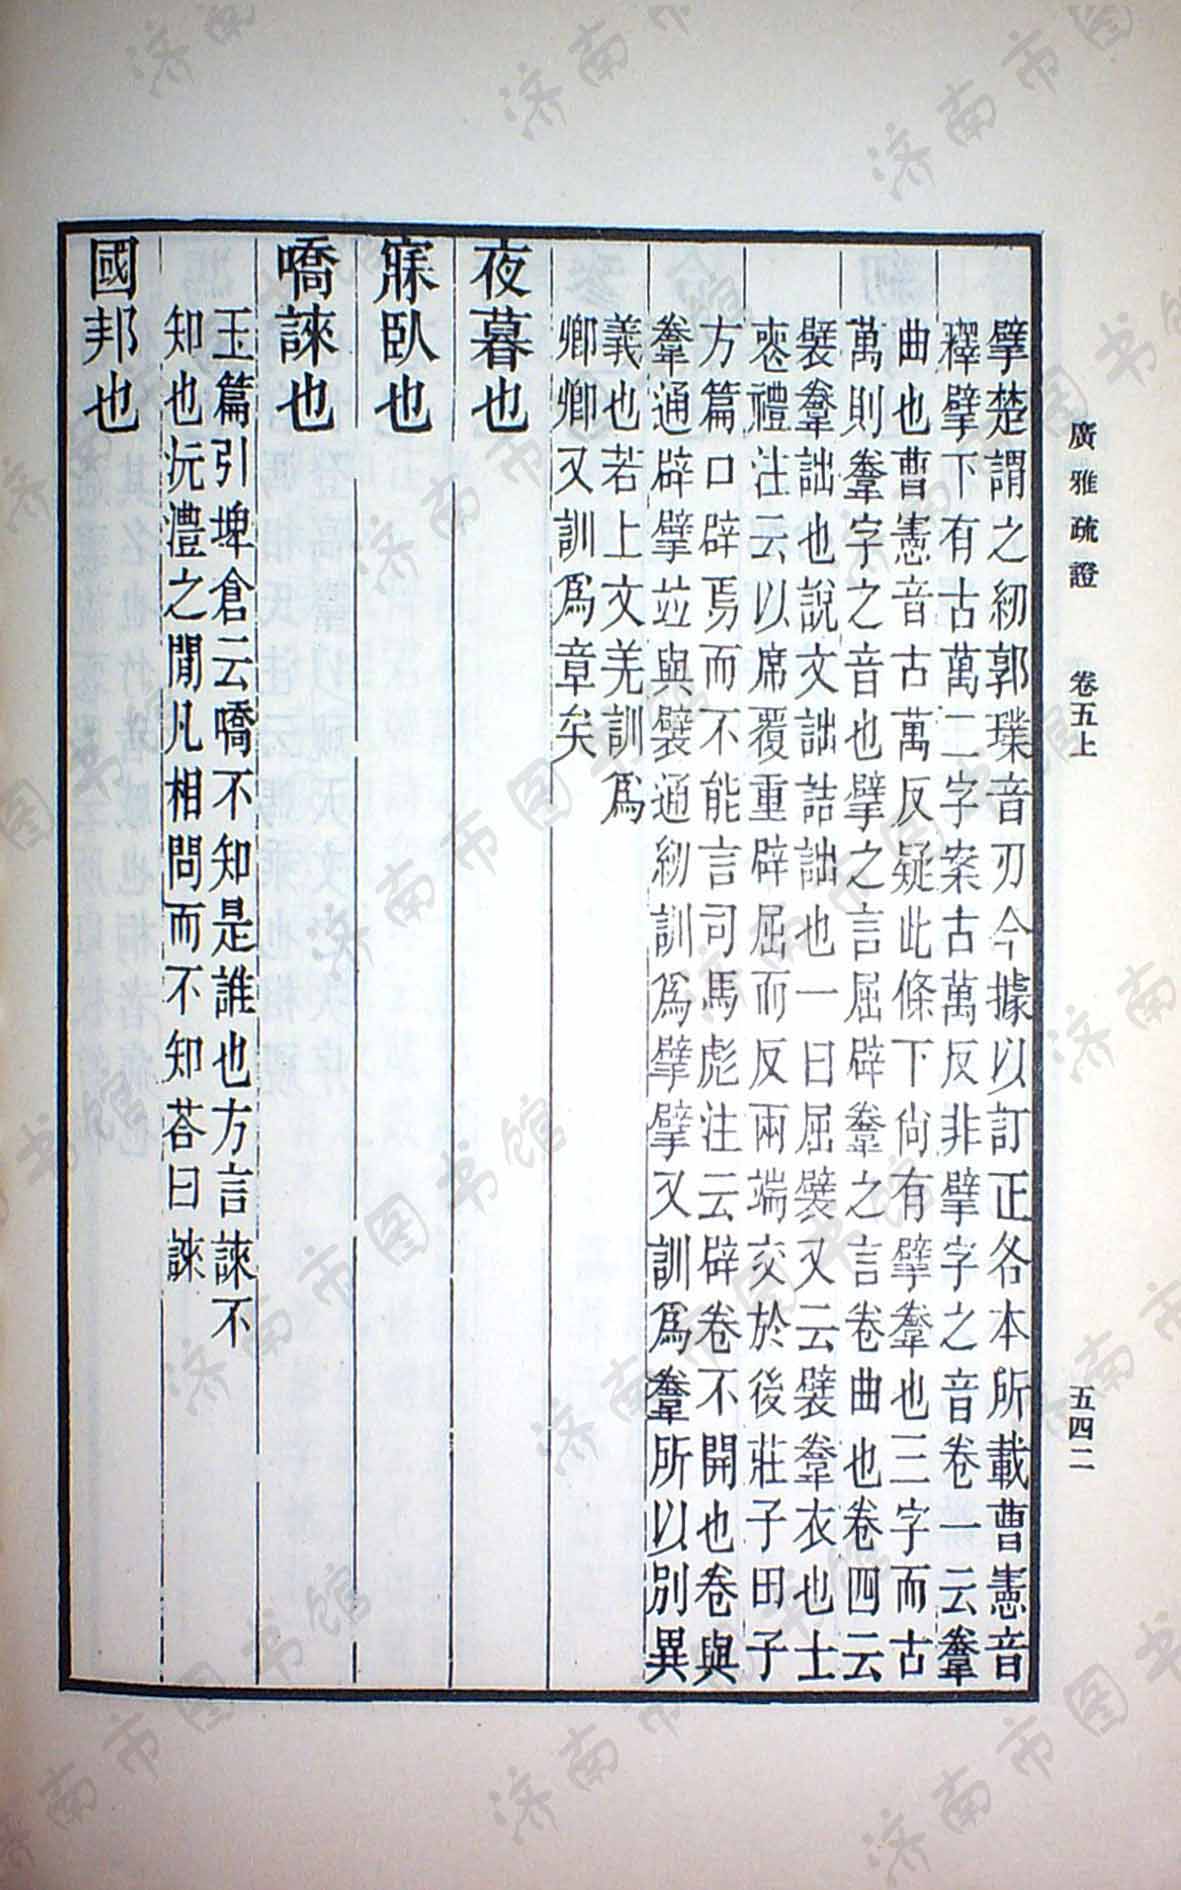 廣雅疏證　卷五上　五四二
擘楚謂之紉郭璞音刃今據以訂正各本所載曹憲音
釋擘下有古萬二字案古萬反非擘字之音卷一云韏
曲也曹憲音古萬反疑此條下尙有擘韏也三字而古
萬則韏字之音也擘之言屈辟韏之言卷曲也卷四云
襞韏詘也說文詘詰詘也一曰屈襞又云襞韏衣也士
喪禮注云以席覆重辟屈而反兩端交於後莊子田子
方篇口辟焉而不能言司馬彪注云辟卷不開也卷與
韏通辟擘竝與襞通紉訓爲擘擘又訓爲韏所以別異
義也若上文羌訓爲
卿卿又訓爲章矣
夜暮也
寐臥也
嘺誺也
玉篇引埤倉云嘺不知是誰也方言誺不
知也沅澧之閒凡相問而不知荅曰誺
國邦也
济南市图书馆